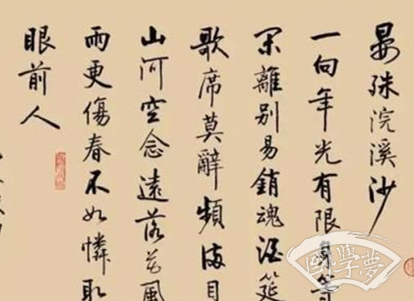 晏殊浣溪沙
一向年光有限身等
閑離别易銷魂酒筵
歌席莫辭頻滿目
山河空念遠落花風
雨更傷春不如憐取
眼前人
國學夢